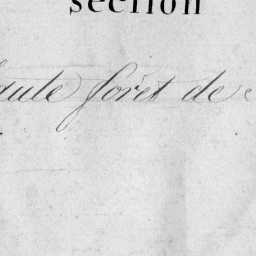 section
forêt de